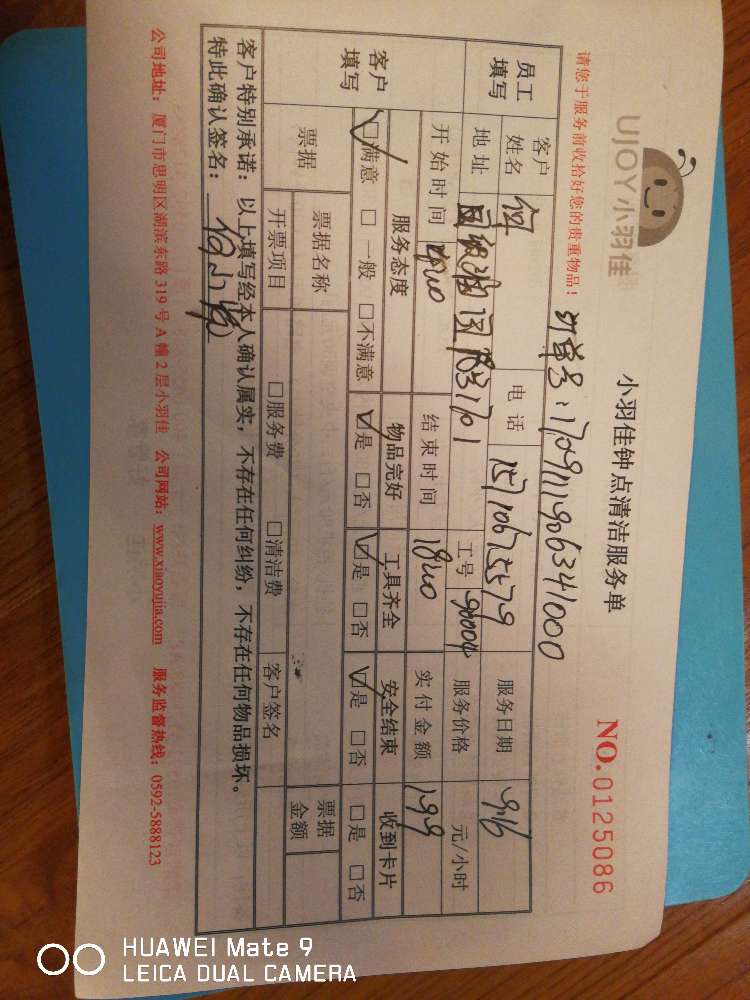 UJOY小羽佳
小羽佳钟点清洁服务单
NO.0125086
请您于服务前收拾好您的贵重物品！
员工填写 客户姓名 何 电话 15710675579 服务日期 9.16
地址 工号 90004 服务价格 元/小时
开始时间 结束时间 1800 实付金额 199
客户填写 服务态度 物品完好 工具齐全 安全结束 收到卡片
☑满意 □一般 □不满意 ☑是 □否 ☑是 □否 ☑是 □否 □是 □否
票据 票据名称 票据金额
开票项目 □服务费 □清洁费 客户签名
客户特别承诺：以上填写经本人确认属实，不存在任何纠纷，不存在任何物品损坏。
特此确认签名：
公司地址：厦门市思明区湖滨东路319号A幢2层小羽佳 公司网站：www.xiaoyujia.com 服务监督热线：0592-5888123
HUAWEI Mate 9
LEICA DUAL CAMERA